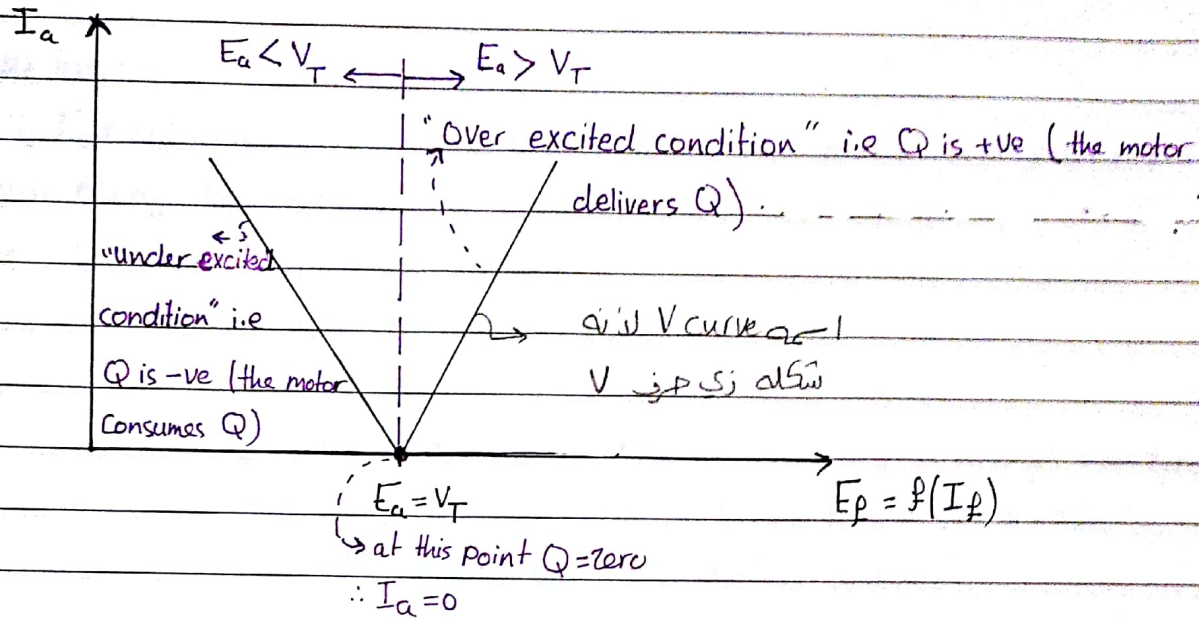 Ia
Ea < VT
Ea > VT
"Over excited condition" i.e Q is +ve (the motor
delivers Q).
"under excited
condition" i.e
Q is -ve (the motor
Consumes Q)
اسمه V curve لانه
شكله زي حرف V
Ea = VT
Ef = f(If)
at this point Q = zero
∴ Ia = 0